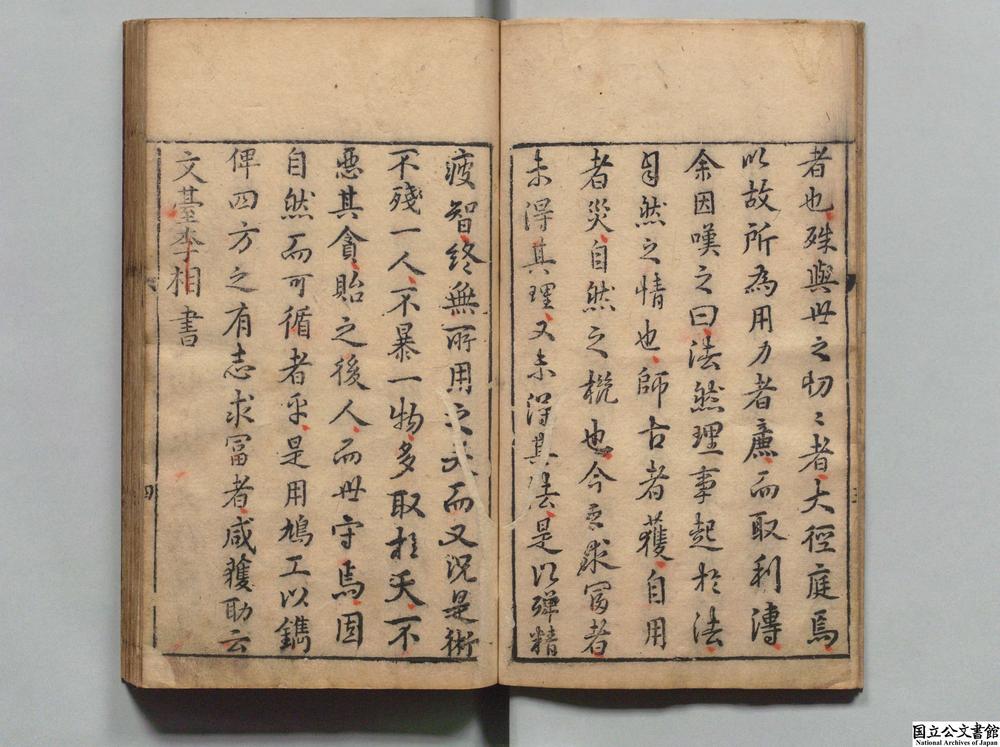 者也殊與世之切〻者大徑庭焉
以故所為用力者廉而取利溥
余因嘆之曰法然理事起於法
自然之情也師古者獲自用
者災自然之槪也今之求富者
未得其理又未得其法是以殫精
疲智終無所用之夫而又況是術
不殘一人不暴一物多取於天不
惡其貪貽之後人而世守焉固
自然而可循者乎是用鳩工以鐫
俾四方之有志求富者咸獲助云
文臺李相書
四
国立公文書館
National Archives of Japan